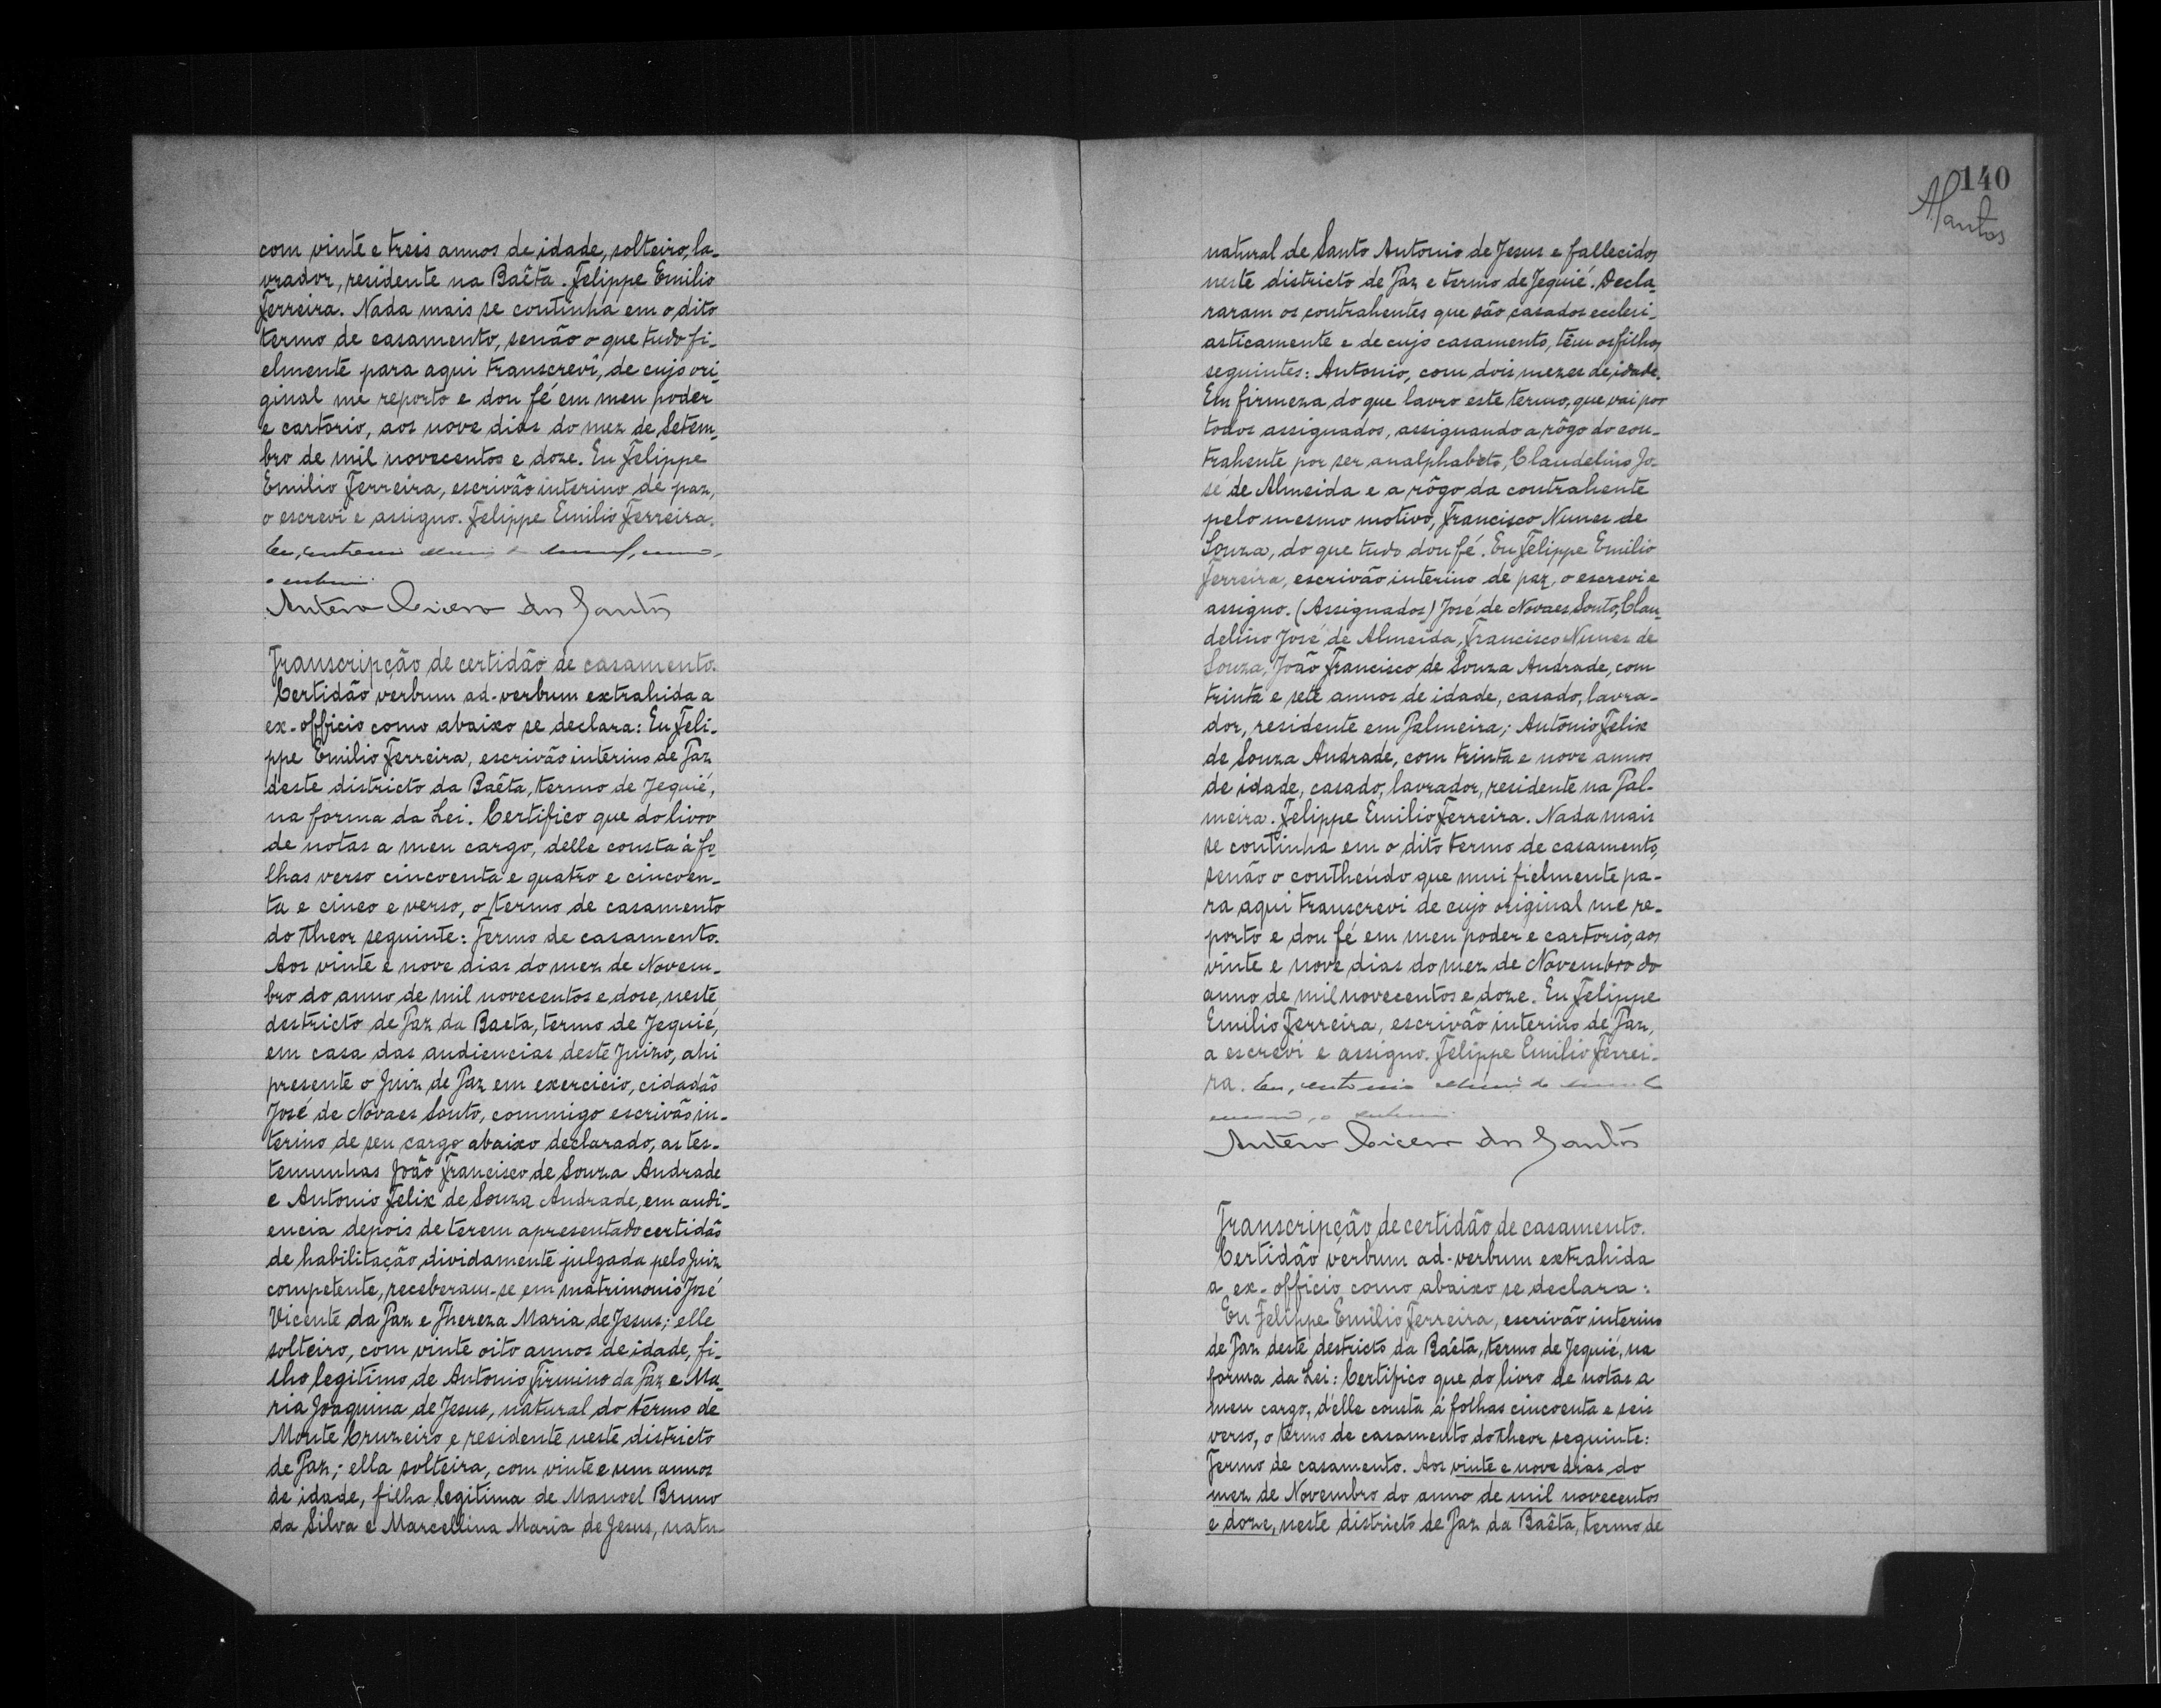 com vinte e treis annos de idade, solteiro, la-
vrador, residente na Baêta. Felippe Emilio
Ferreira. Nada mais se continha em o dito
termo de casamento, senão o que tudo fi-
elmente para aqui transcrevi, de cujo ori-
ginal me reporto e dou fé em meu poder
e cartorio, aos nove dias do mez de Setem-
bro de mil novecentos e doze. Eu Felippe
Emilio Ferreira, escrivão interino de paz,
o escrevi e assigno. Felippe Emilio Ferreira.
Eu, Antonio
o subscrevi.
Antero Cicero dos Santos
Transcripção de certidão de casamento.
Certidão verbum ad-verbum extrahida a
ex-officio como abaixo se declara: Eu Feli-
ppe Emilio Ferreira, escrivão interino de Paz
deste districto da Baêta, termo de Jequié,
na forma da Lei. Certifico que do livro
de notas a meu cargo, delle consta á fo-
lhas verso cincoenta e quatro e cincoen-
ta e cinco e verso, o termo de casamento
do theor seguinte: Termo de casamento.
Aos vinte e nove dias do mez de Novem-
bro do anno de mil novecentos e dose, neste
destricto de Paz da Baeta, termo de Jequié,
em casa das audiencias deste Juizo, ahi
presente o Juiz de Paz em exercicio, cidadão
José de Novaes Souto, commigo escrivão in-
terino de seu cargo abaixo declarado, as tes-
temunhas João Francisco de Souza Andrade
e Antonio Felix de Souza Andrade, em audi-
encia depois de terem apresentado certidão
de habilitação dividamente julgada pelo Juiz
competente, receberam-se em matrimonio José
Vicente da Paz e Thereza Maria de Jesus; elle
solteiro, com vinte oito annos de idade, fi-
lho legitimo de Antonio Firmino da Paz e Ma-
ria Joaquina de Jesus, natural do termo de
Monte Cruzeiro e residente neste districto
de Paz; ella solteira, com vinte e um annos
de idade, filha legitima de Manoel Bruno
da Silva e Marcellina Maria de Jesus, natu-
140
ASantos
natural de Santo Antonio de Jesus e fallecidos
neste districto de Paz e termo de Jequié. Decla-
raram os contrahentes que são casados eccleri-
asticamente e de cujo casamento, têm os filhos
seguintes: Antonio, com dois mezes de idade.
Em firmeza do que lavro este termo, que vai por
todos assignados, assignando a rôgo do con-
trahente por ser analphabeto, Claudelino Jo-
sé de Almeida e a rôgo da contrahente
pelo mesmo motivo, Francisco Nunes de
Souza, do que tudo dou fé. Eu Felippe Emilio
Ferreira, escrivão interino de paz, o escrevi e
assigno. (Assignados) José de Novaes Souto, Clau-
delino José de Almeida, Francisco Nunes de
Souza, João Francisco de Souza Andrade, com
trinta e sete annos de idade, casado, lavra-
dor, residente em Palmeira; Antonio Felix
de Souza Andrade, com trinta e nove annos
de idade, casado, lavrador, residente na Pal-
meira. Felippe Emilio Ferreira. Nada mais
se continha em o dito termo de casamento,
senão o contheúdo que mui fielmente pa-
ra aqui transcrevi de cujo original me re-
porto e dou fé em meu poder e cartorio, aos
vinte e nove dias do mez de Novembro do
anno de mil novecentos e doze. Eu Felippe
Emilio Ferreira, escrivão interino de Paz,
a escrevi e assigno. Felippe Emilio Ferrei-
ra. Eu, Antonio
o subscrevi.
Antero Cicero dos Santos
Transcripção de certidão de casamento.
Certidão verbum ad-verbum extrahida
a ex-officio como abaixo se declara:
Eu Felippe Emilio Ferreira, escrivão interino
de Paz deste destricto da Baêta, termo de Jequié, na
forma da Lei: Certifico que do livro de notas a
meu cargo, d'elle consta á folhas cincoenta e seis
verso, o termo de casamento do theor seguinte:
Termo de casamento. Aos vinte e nove dias do
mez de Novembro do anno de mil novecentos
e doze, neste districto de Paz da Baêta, termo de